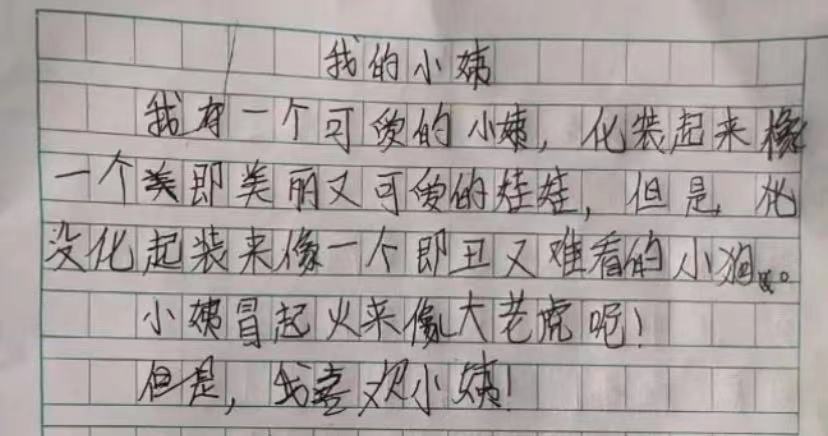 我的小姨
我有一个可爱的小姨，化装起来像
一个美即美丽又可爱的娃娃，但是，化
没化起装来像一个即丑又难看的小狗。
小姨冒起火来像大老虎呢！
但是，我喜欢小姨！